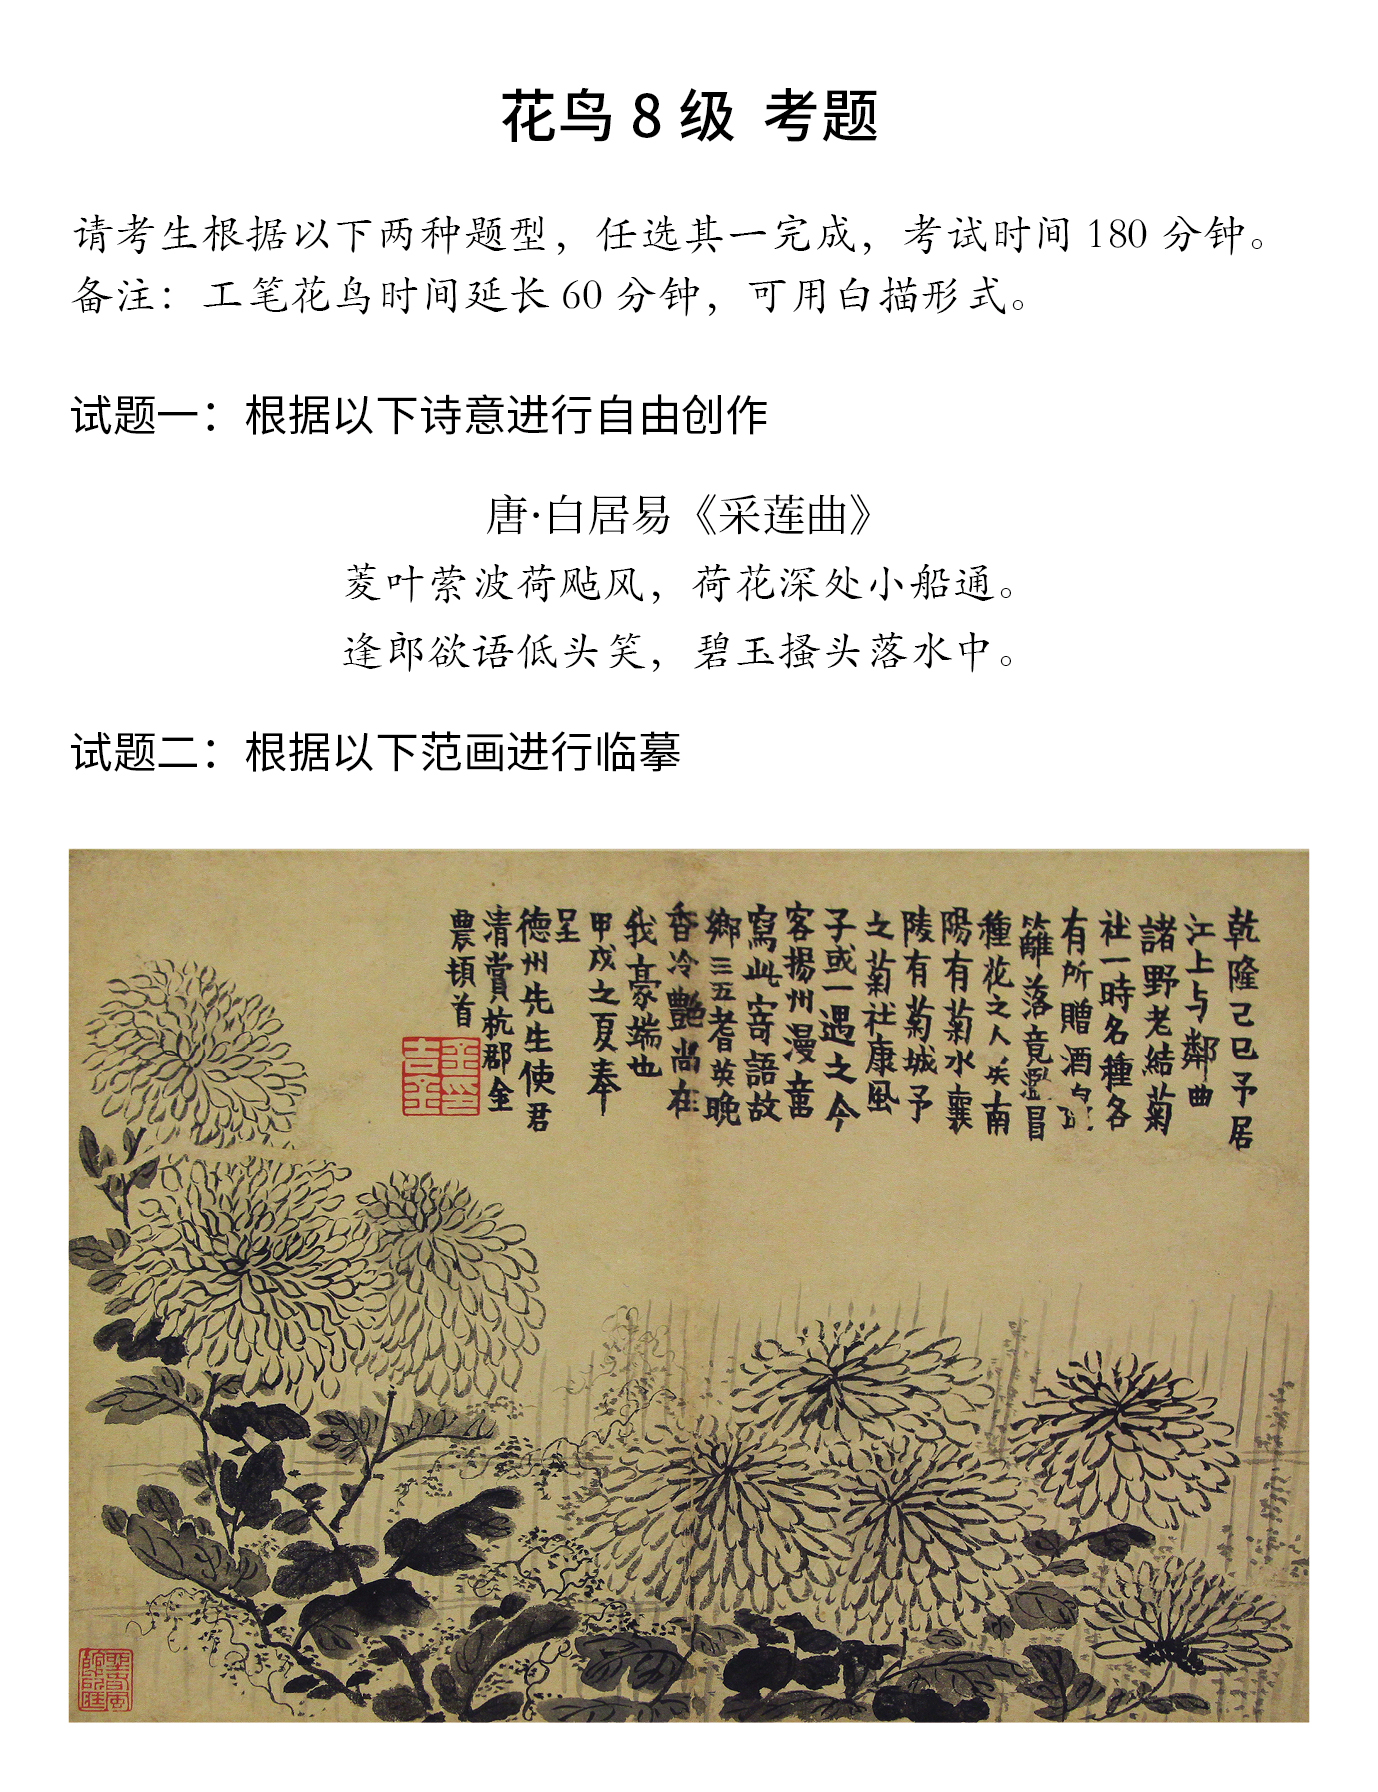 花鸟 8 级 考题
请考生根据以下两种题型，任选其一完成，考试时间 180 分钟。
备注：工笔花鸟时间延长 60 分钟，可用白描形式。
试题一：根据以下诗意进行自由创作
唐·白居易《采莲曲》
菱叶萦波荷飐风，荷花深处小船通。
逢郎欲语低头笑，碧玉搔头落水中。
试题二：根据以下范画进行临摹
乾隆己巳予居
江上与鄰曲
諸野老結菊
社一時名種各
有所贈酒
籬落竟冒
種花之人矣南
陽有菊水襄
陵有菊城予
之菊社康風
子或一遇之今
客揚州漫畫
寫此寄語故
鄉三五耆英晚
香冷艷尚在
我豪端也
甲戌之夏奉
呈
德州先生使君
清賞杭郡金
農頓首
金吉金印